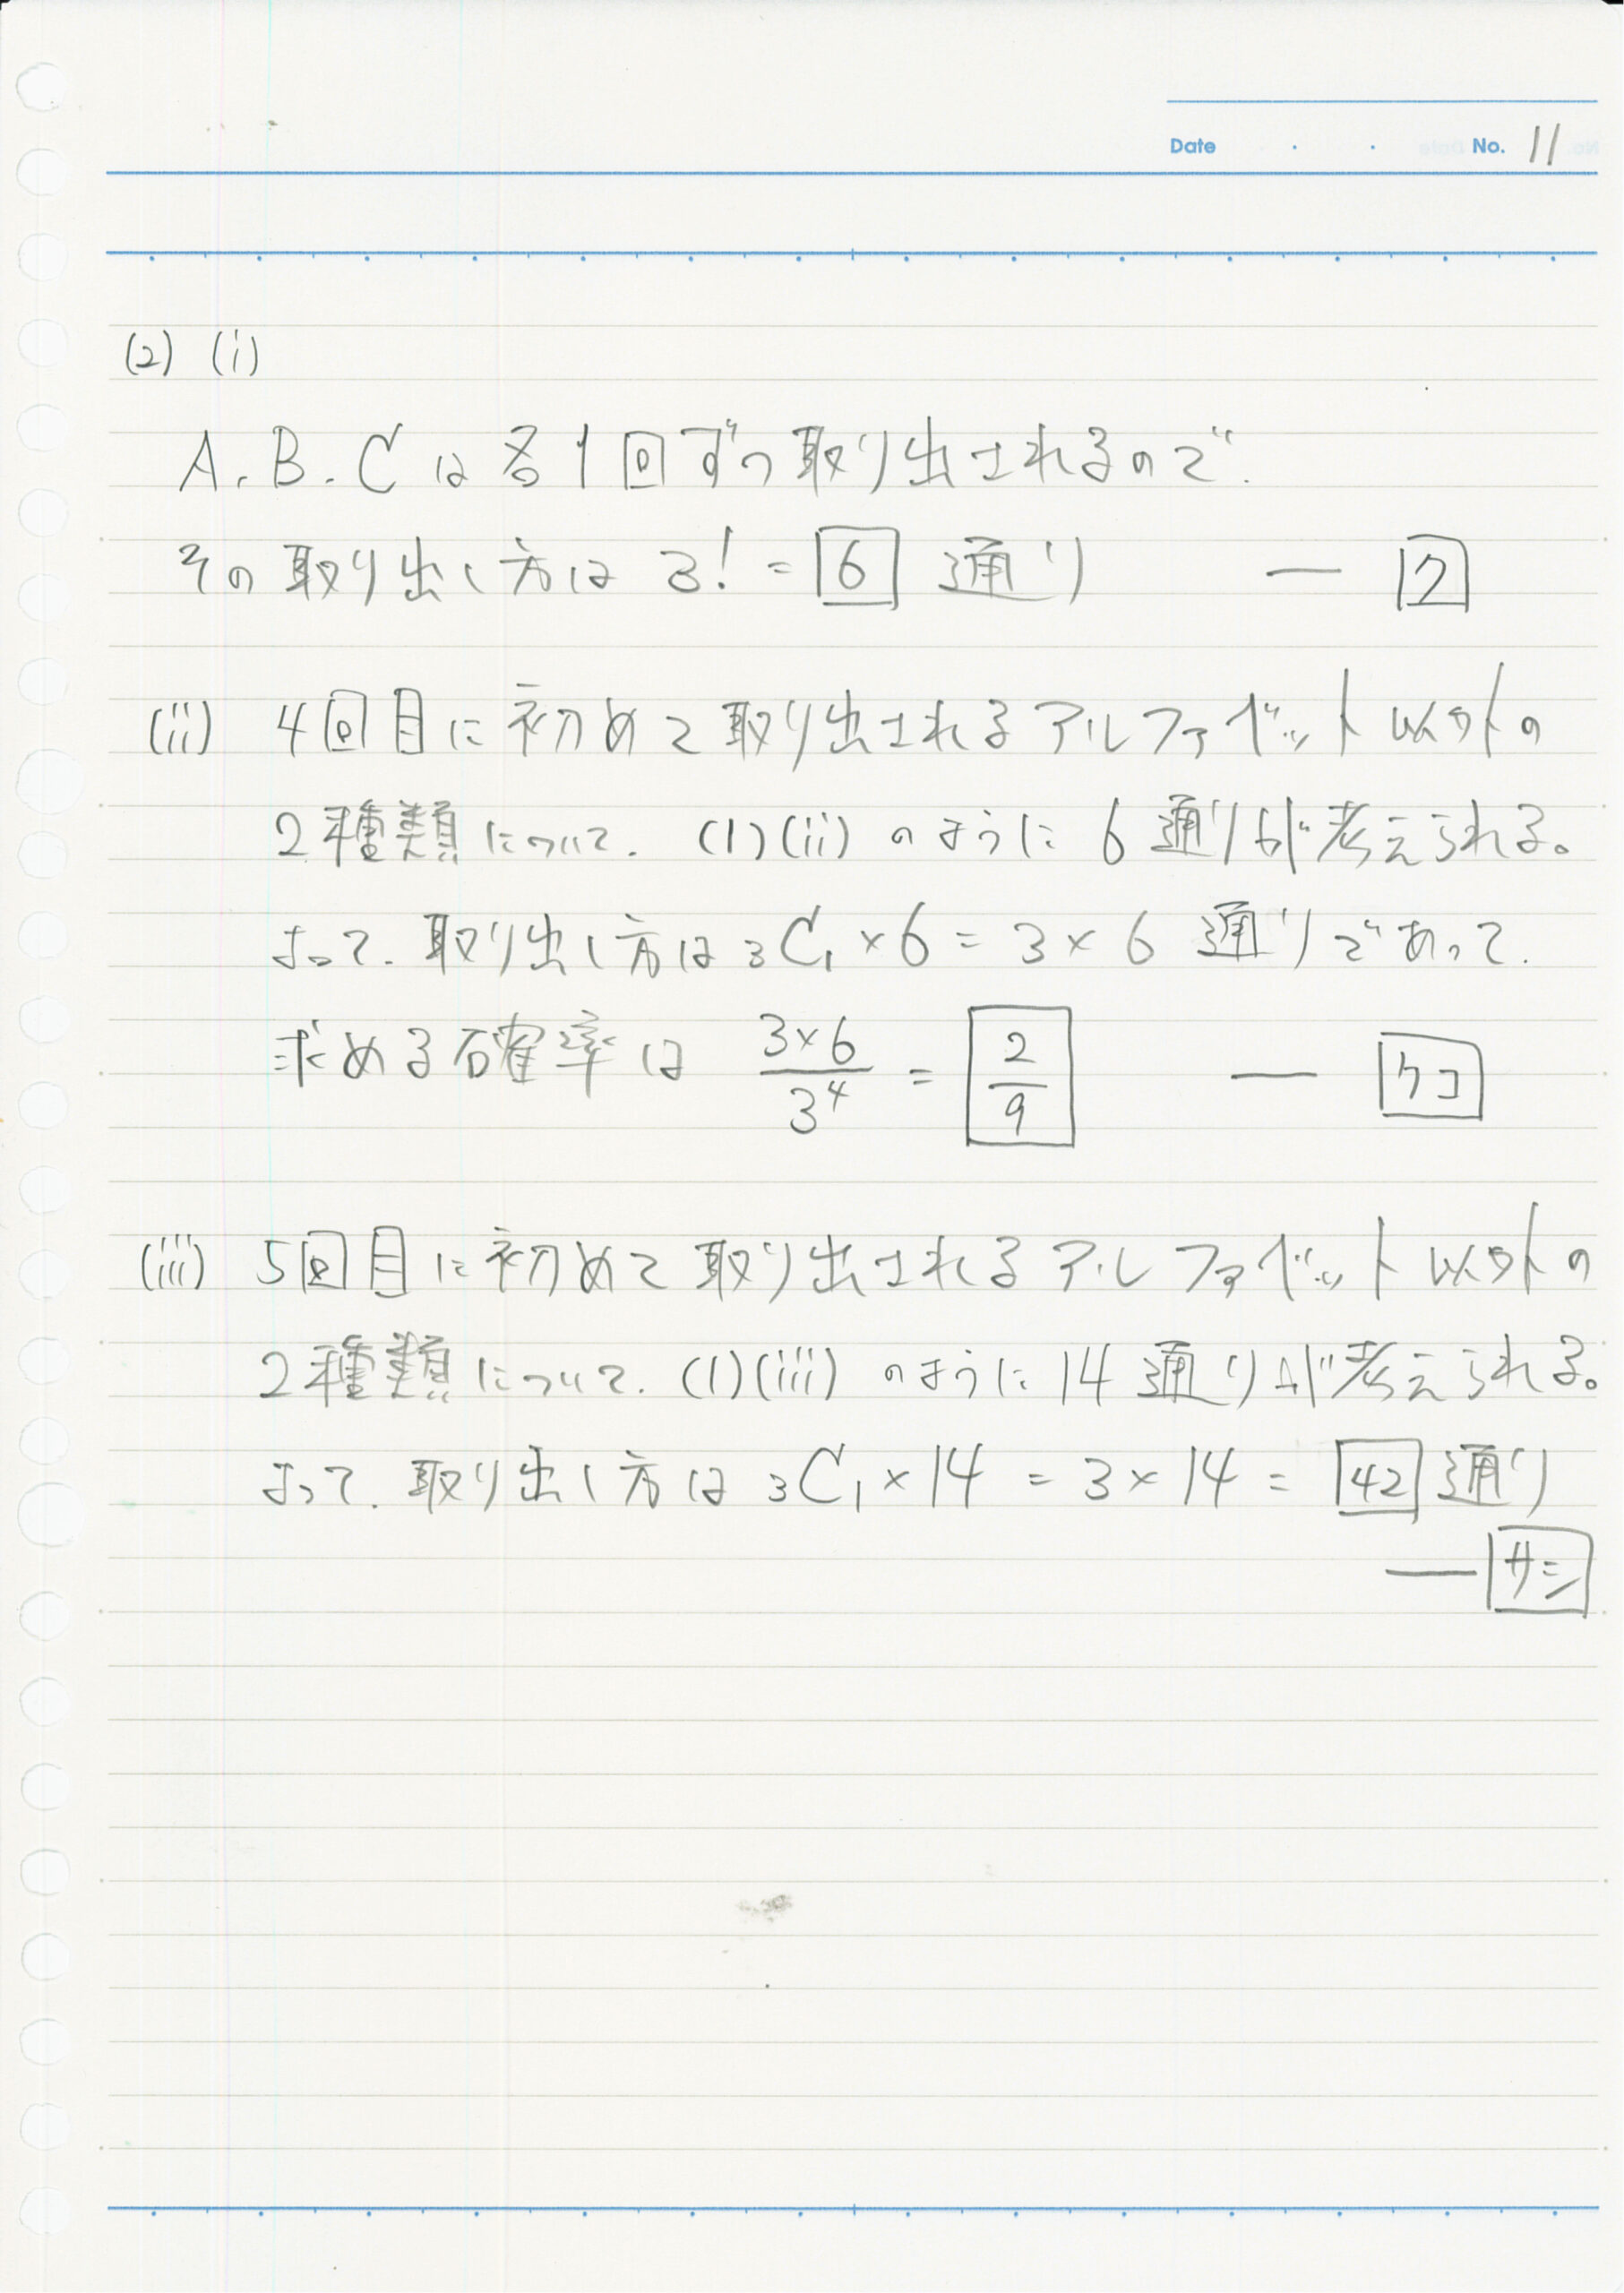 Date . . No. 11
(2) (i)
A, B, C は各1回ずつ取り出されるので,
その取り出し方は 3! = 6 通り — ク
(ii) 4回目に初めて取り出されるアルファベット以外の
2種類について, (1)(ii) のように 6 通りが考えられる。
よって, 取り出し方は ₃C₁ × 6 = 3 × 6 通りであって,
求める確率は 3×6/3⁴ = 2/9 — ケコ
(iii) 5回目に初めて取り出されるアルファベット以外の
2種類について, (1)(iii) のように 14 通りが考えられる。
よって, 取り出し方は ₃C₁ × 14 = 3 × 14 = 42 通り
— サシ